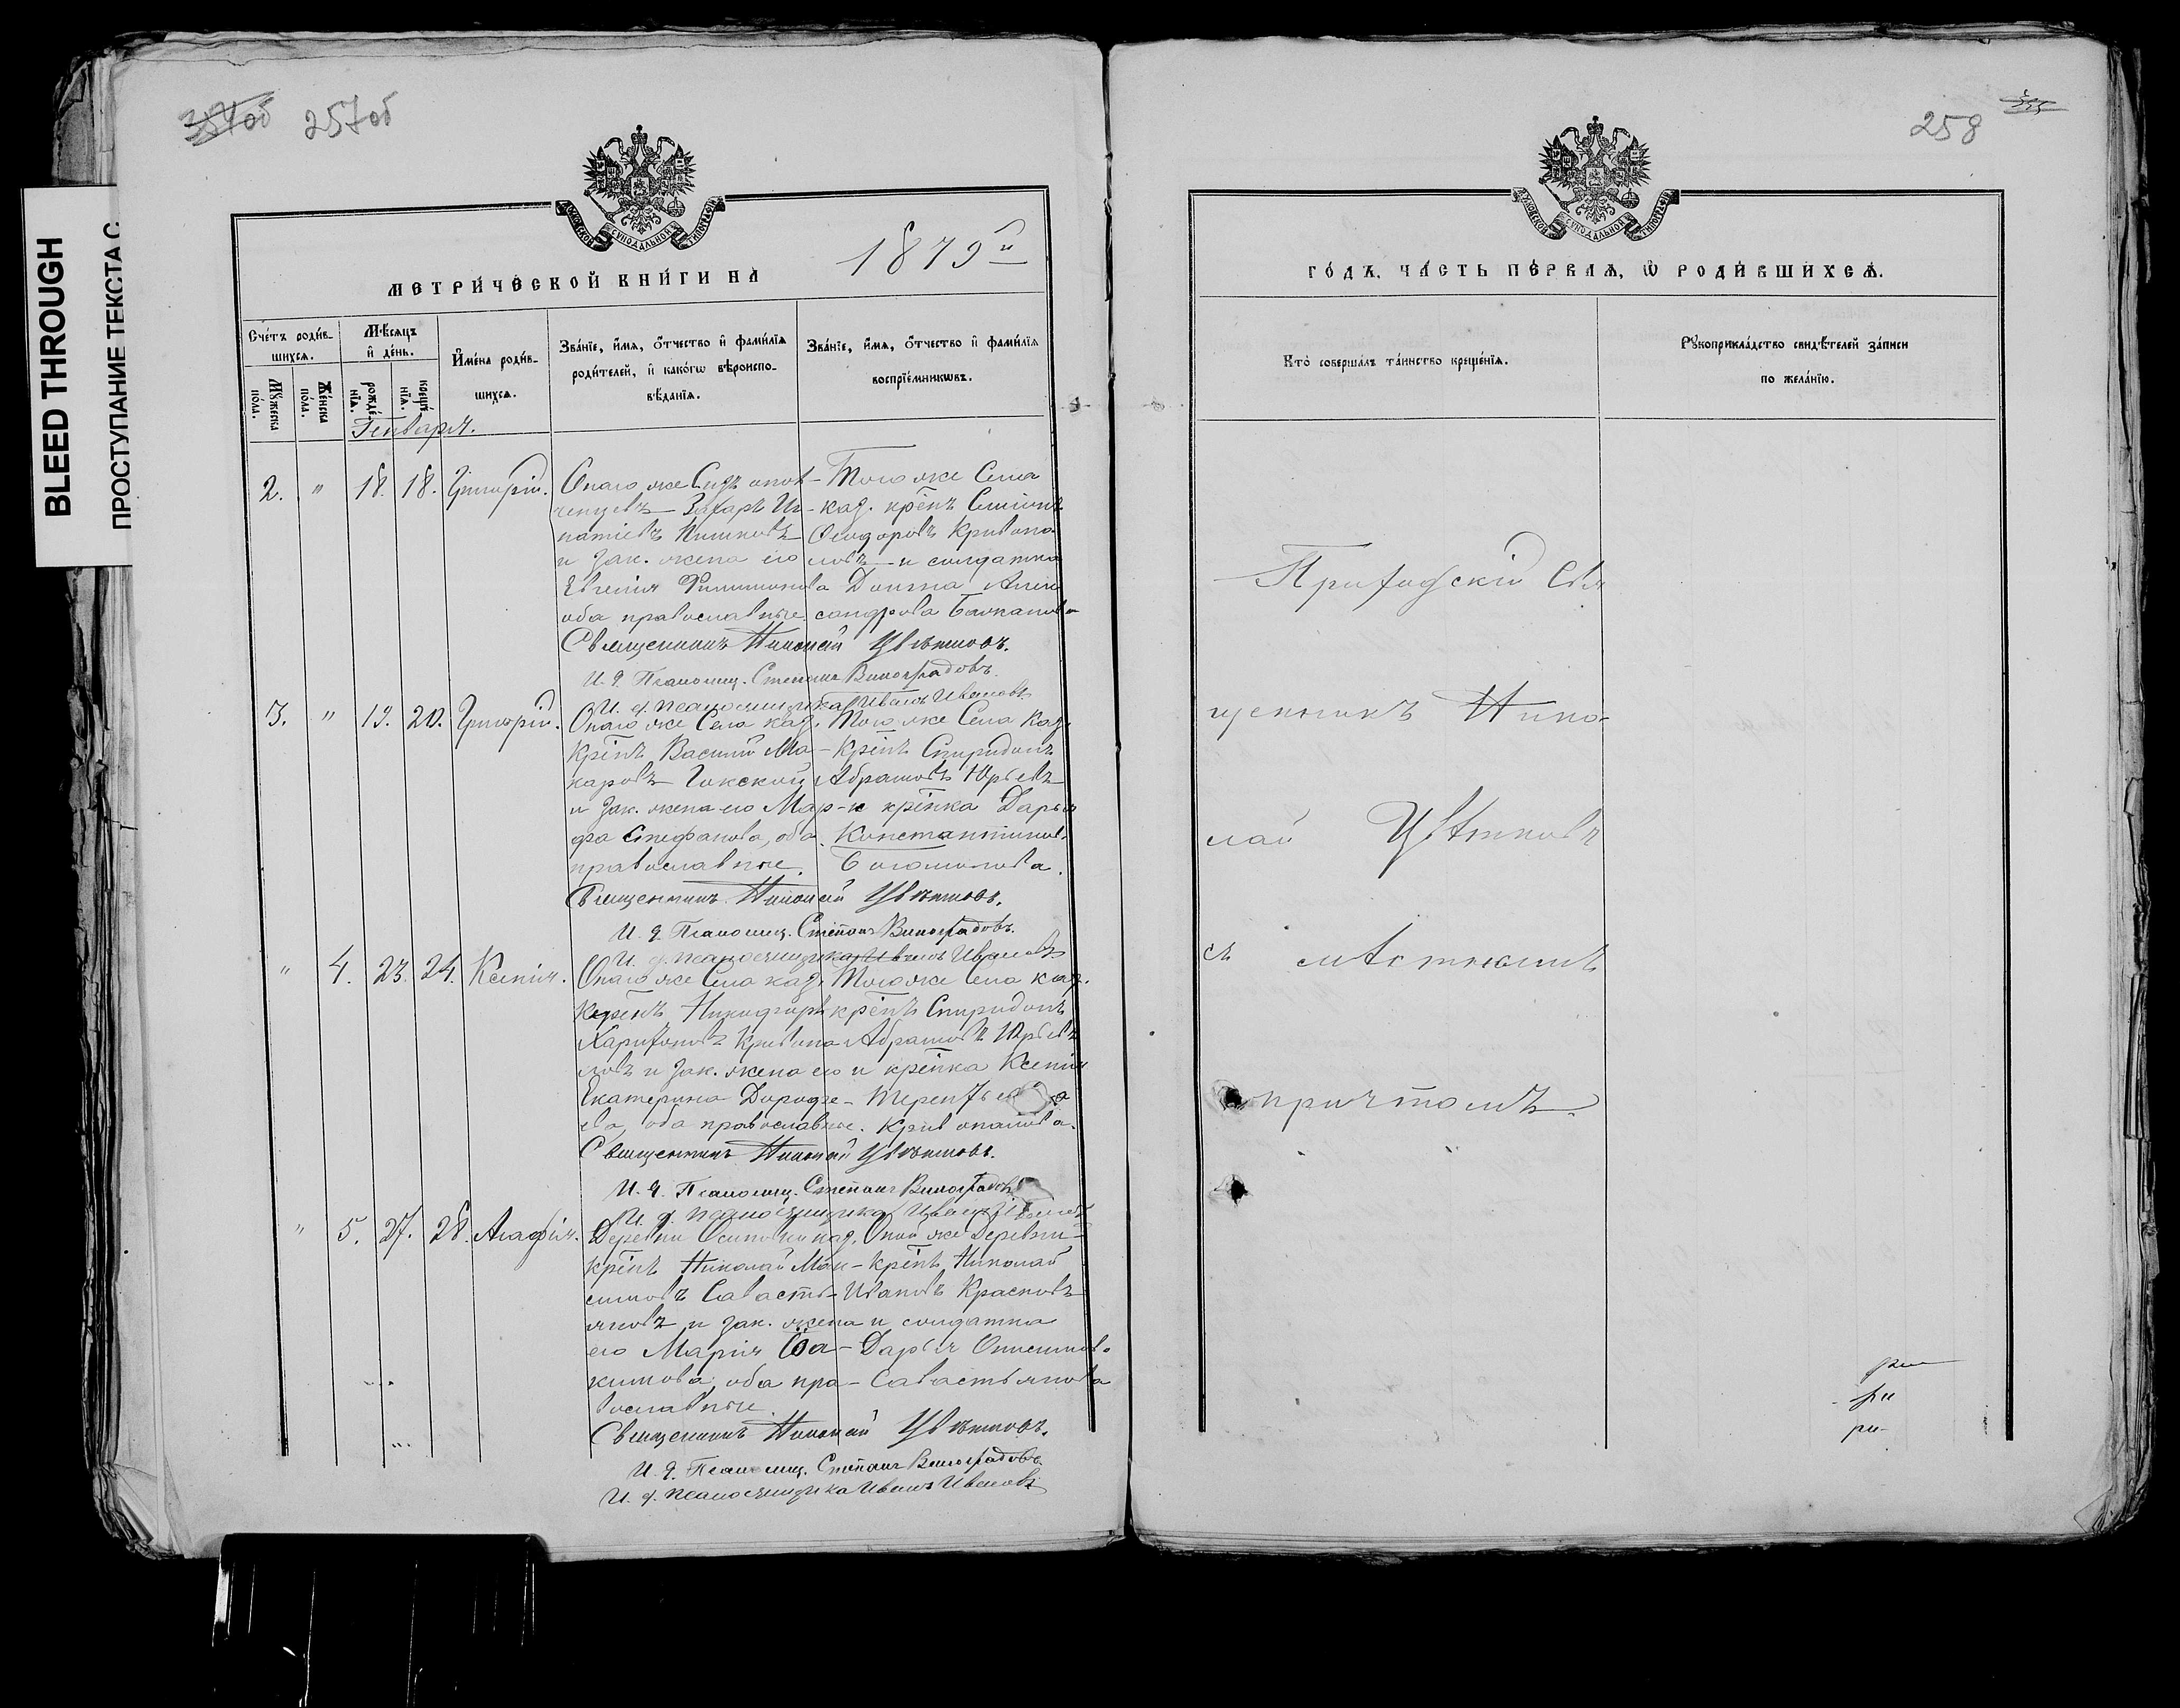 257об
258
BLEED THROUGH
ПРОСТУПАНИЕ ТЕКСТА С
МЕТРИЧЕСКОЙ КНИГИ НА 1879й
ГОДЪ, ЧАСТЬ ПЕРВАЯ, Ѡ РОДИВШИХСЯ.
Счетъ родив-
шихся.
Мужеска пола.
Женска пола.
Мѣсяцъ
и день.
рожденія.
крещенія.
Имена родив-
шихся.
Званіе, имя, отчество и фамилія
родителей, и какогѡ вѣроиспо-
вѣданія.
Званіе, имя, отчество и фамилія
воспріемникѡвъ.
Кто совершалъ таинство крещенія.
Рꙋкоприкладство свидѣтелей записи
по желанію.
Генваря.
2. " 18. 18. Григорій.
Онаго же Села
Захаръ Иг-
натіевъ
и зак. жена его
Евгенія Филимонова
оба православные.
Того же Села
каз. крѣпъ Симіонъ
Ѳеодоровъ Кривопа-
ловъ и солдатка
Домна Алек-
сандрова
Священникъ Николай Цвѣтковъ.
И. д. Псаломщ. Степанъ Виноградовъ.
И. д. псаломщика Иванъ Ивановъ
3. " 19. 20. Григорій.
Онаго же Села каз.
крѣпъ Василій Ма-
каровъ
и зак. жена его Мар-
фа Стефанова, оба
православные.
Того же Села каз.
крѣпъ Спиридонъ
Абрамовъ Юрьевъ
и крѣпка Дарья
Константинов.
Богомолова.
Священникъ Николай Цвѣтковъ.
И. д. Псаломщ. Степанъ Виноградовъ.
И. д. псаломщика Иванъ Ивановъ
" 4. 23. 24. Ксенія.
Онаго же Села каз.
крѣпъ Никифоръ
Харитоновъ Кривопа-
ловъ и зак. жена его
Екатерина Дорофе-
ева, оба православные.
Того же Села каз.
крѣпъ Спиридонъ
Абрамовъ Юрьевъ
и крѣпка Ксенія
Терентьева
Кривопалова.
Священникъ Николай Цвѣтковъ.
И. д. Псаломщ. Степанъ Виноградовъ.
И. д. псаломщика Иванъ Ивановъ
" 5. 27. 28. Агафія.
Деревни Осиповки каз.
крѣпъ Николай Мак-
симовъ Савасть-
яновъ и зак. жена
его Марія
кимова, оба пра-
вославные.
Оной же Деревни
крѣпъ Николай
Ивановъ Красновъ
и солдатка
Дарья Онисимов.
Савастьянова
Священникъ Николай Цвѣтковъ.
И. д. Псаломщ. Степанъ Виноградовъ.
И. д. псаломщика Иванъ Ивановъ
Приходскій Свя
щенникъ Нико-
лай Цвѣтковъ
съ мѣстнымъ
причтомъ.